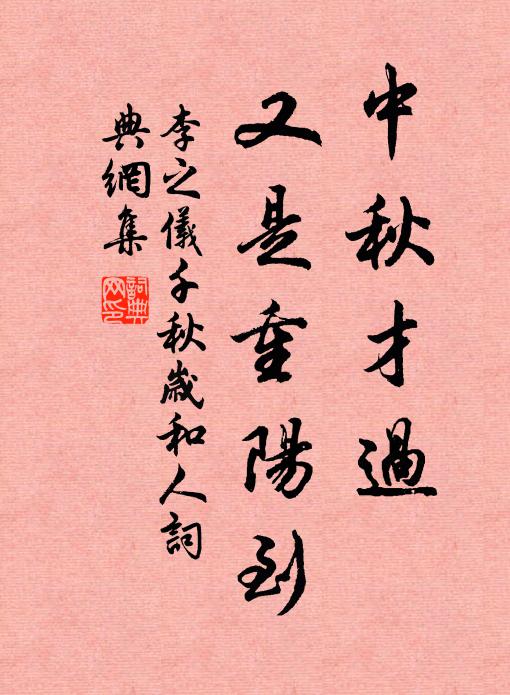 中秋才過
又是重陽到
李之儀千秋歲和人詞
典網集
詞典
网印